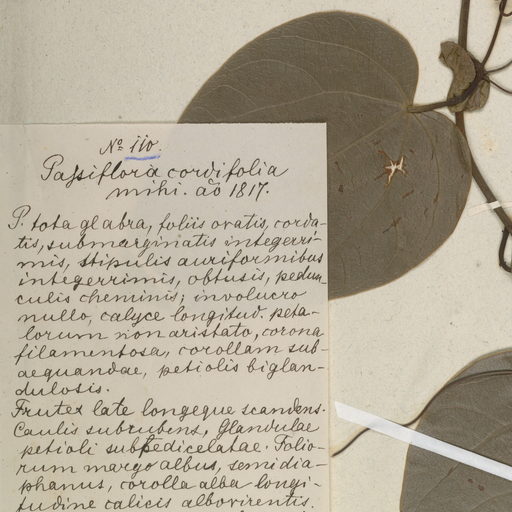 No 110.
Passiflora cordifolia
mihi. ao 1817.
P. tota glabra, foliis ovatis, corda-
tis, submarginatis integerri-
mis, stipulis auriformibus
integerrimis, obtusis, pedun-
culis cheminis; involucro
nullo, calyce longitud. peta-
lorum non aristato, corona
filamentosa, corollam sub-
aequandae, petiolis biglan-
dulosis.
Frutex late longeque scandens.
Caulis subrubens, Glandulae
petioli subpedicelatae. Folio-
rum margo albus, semidia-
phanus, corolla alba longi-
tudine calicis albovirentis.